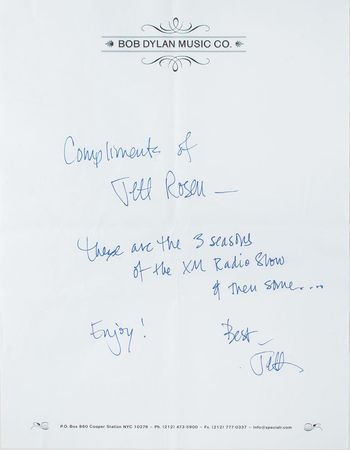 BOB DYLAN MUSIC CO.
Compliments of
Jeff Rosen —
these are the 3 seasons
of the XM Radio Show
& then some...
Enjoy!
Best —
Jeff
P.O. Box 860 Cooper Station NYC 10276 – Ph. (212) 473-5900 – Fx. (212) 777-0337 – info@specialr.com